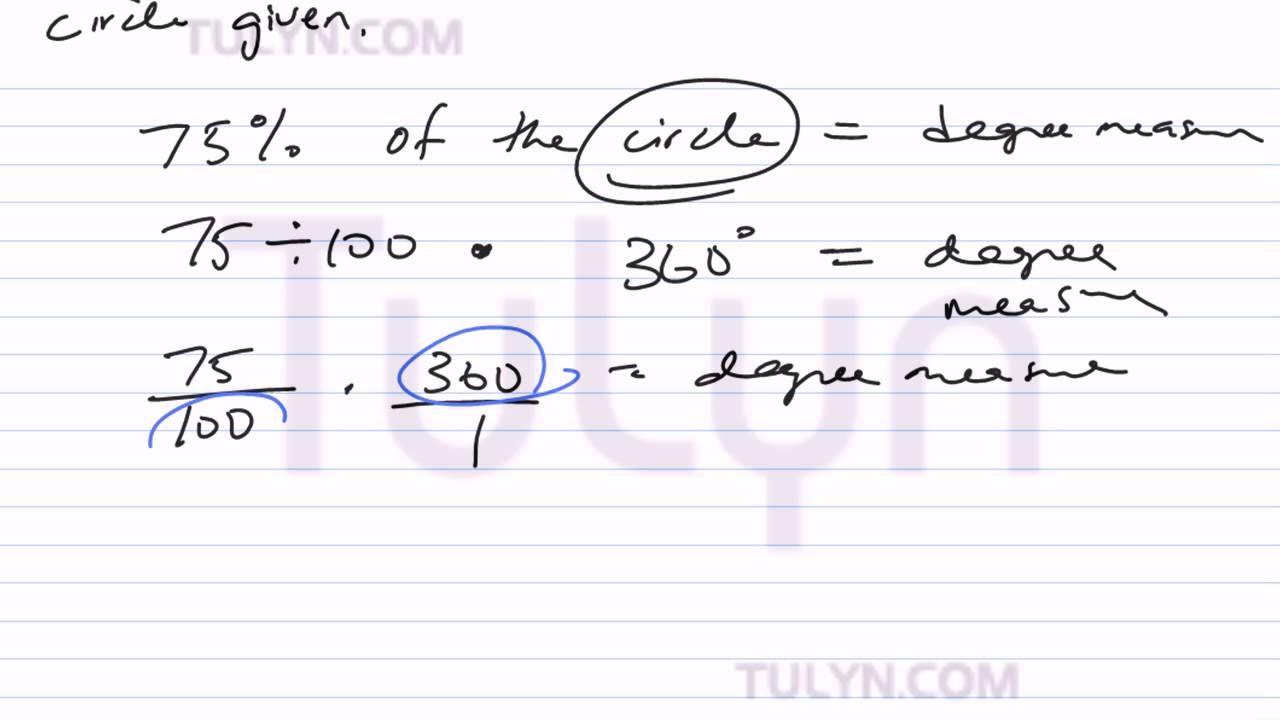 circle given.
TULYN.COM
75% of the circle = degree measure
75 ÷ 100 • 360° = degree
measure
Tulyn
75/100 · 360/1 = degree measure
TULYN.COM